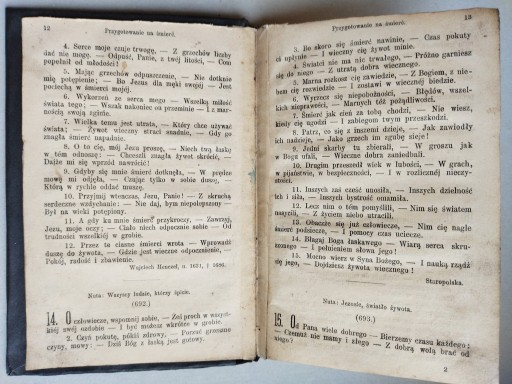 12
Przygotowanie na śmierć.
4. Serce moje czuje trwogę, — Z grzechów liczby
dać nie mogę. — Odpuść, Panie, z twej litości, — Com
popełnił od młodości!
5. Mając grzechów odpuszczenie, — Nie dotknie
mię potępienie; — Bo Jezus dla męki swojej — Jest
pociechą w śmierci mojej.
6. Wykorzeń ze serca mego — Wszelką miłość
świata tego; — Wszak nakoniec on przeminie — I z marnością swoją zginie.
7. Wielka temu jest utrata, — Który chce używać
świata; — Żywot wieczny straci snadnie, — Gdy go
znagła śmierć napadnie.
8. O to cię, mój Jezu proszę, — Niech twą łaskę
w tém odnoszę: — Chceszli znagła żywot skrócić, —
Każże mi się wprzód nawrócić!
9. Gdyby się mnie śmierć dotknęła, — W prędce
mowę mi odjęła, — Czuję tylko w sobie duszę, —
Którą w rychle oddać muszę.
10. Przyjmij wtenczas, Jezu, Panie! — Z skruchą
serdeczne wzdychanie: — Nie daj, bym niepołepszony —
Był na wieki potępiony.
11. A gdy ka mnie śmierć przykroczy, — Zawrzyj,
Jezu, moje oczy; — Ciało niech odpocznie sobie — Od
trudności wszelkich w grobie.
12. Przez to ciasne śmierci wrota — Wprowadź
duszę do żywota, — Gdzie jest wieczne odpocznienie, —
Pokój, radość i zbawienie.
Nuta: Wszyscy ludzie, którzy żyjcie.
(692.)
14. O człowiecze, wspomnij sobie, — Żeś proch w wszystkiéj swéj ozdobie — I być możesz wkrótce w grobie.
2. Czyń pokutę, pókiś zdrowy, — Porzuć grzeszne
czyny, mowy: — Dziś Bóg z łaską jest gotowy.
Przygotowanie na śmierć.
3. Bo skoro się śmierć nawinie, — Czas pokuty
ci upłynie — I wieczny cię żywot minie.
4. Świateć nie ma nic trwałego, — Próżno garniesz
się do niego — Z utratą dobra wiecznego.
5. Marna rozkosz cię zawiedzie, — Z Bogiem, z niebem cię rozwiedzie — I zostawi w wiecznéj biedzie.
6. Wyrzecz się niepobożności, — Błędów, wszelkich nieprawości, — Marnych téż pożądliwości.
7. Śmierć jak cień za tobą chodzi, — Nie wiesz,
kiedy cię ugodzi — I zabiegom twym przeszkodzi.
8. Patrz, co się z inszemi dzieje, — Jak zawiodły
ich nadzieje, — Jako grzech im zgubę sieje!
9. Jedni skarby tu zbierali, — W groszu jak
w Bogu ufali, — Wieczne dobra zaniedbali.
10. Drugim przeszedł wiek w lubości, — W grach,
w pijaństwie, w bezpieczności, — I w rozlicznéj nieczystości.
11. Inszych zaś cześć unosiła, — Inszych dzielność
ich i siła, — Inszych bystrość omamiła.
12. Lecz nim o tém pomyślili, — Nim się światem
nasycili, — Z życiem niebo utracili.
13. Obaczcie się już człowiecze, — Nim cię nagle
śmierć podsiecze, — I pomocy czas uciecze.
14. Błagaj Boga łaskawego — Wiarą serca skruszonego — I pełnieniem słowa jego!
15. Mocno wierz w Syna Bożego, — I nauką rządź
się jego, — Dojdziesz żywota wiecznego!
Staropolska.
Nuta: Jezusie, światło żywota.
(693.)
15. Od Pana wiele dobrego — Bierzemy czasu każdego:
— Czemuż nie mamy i złego — Z dobrą wolą brać od
niego?